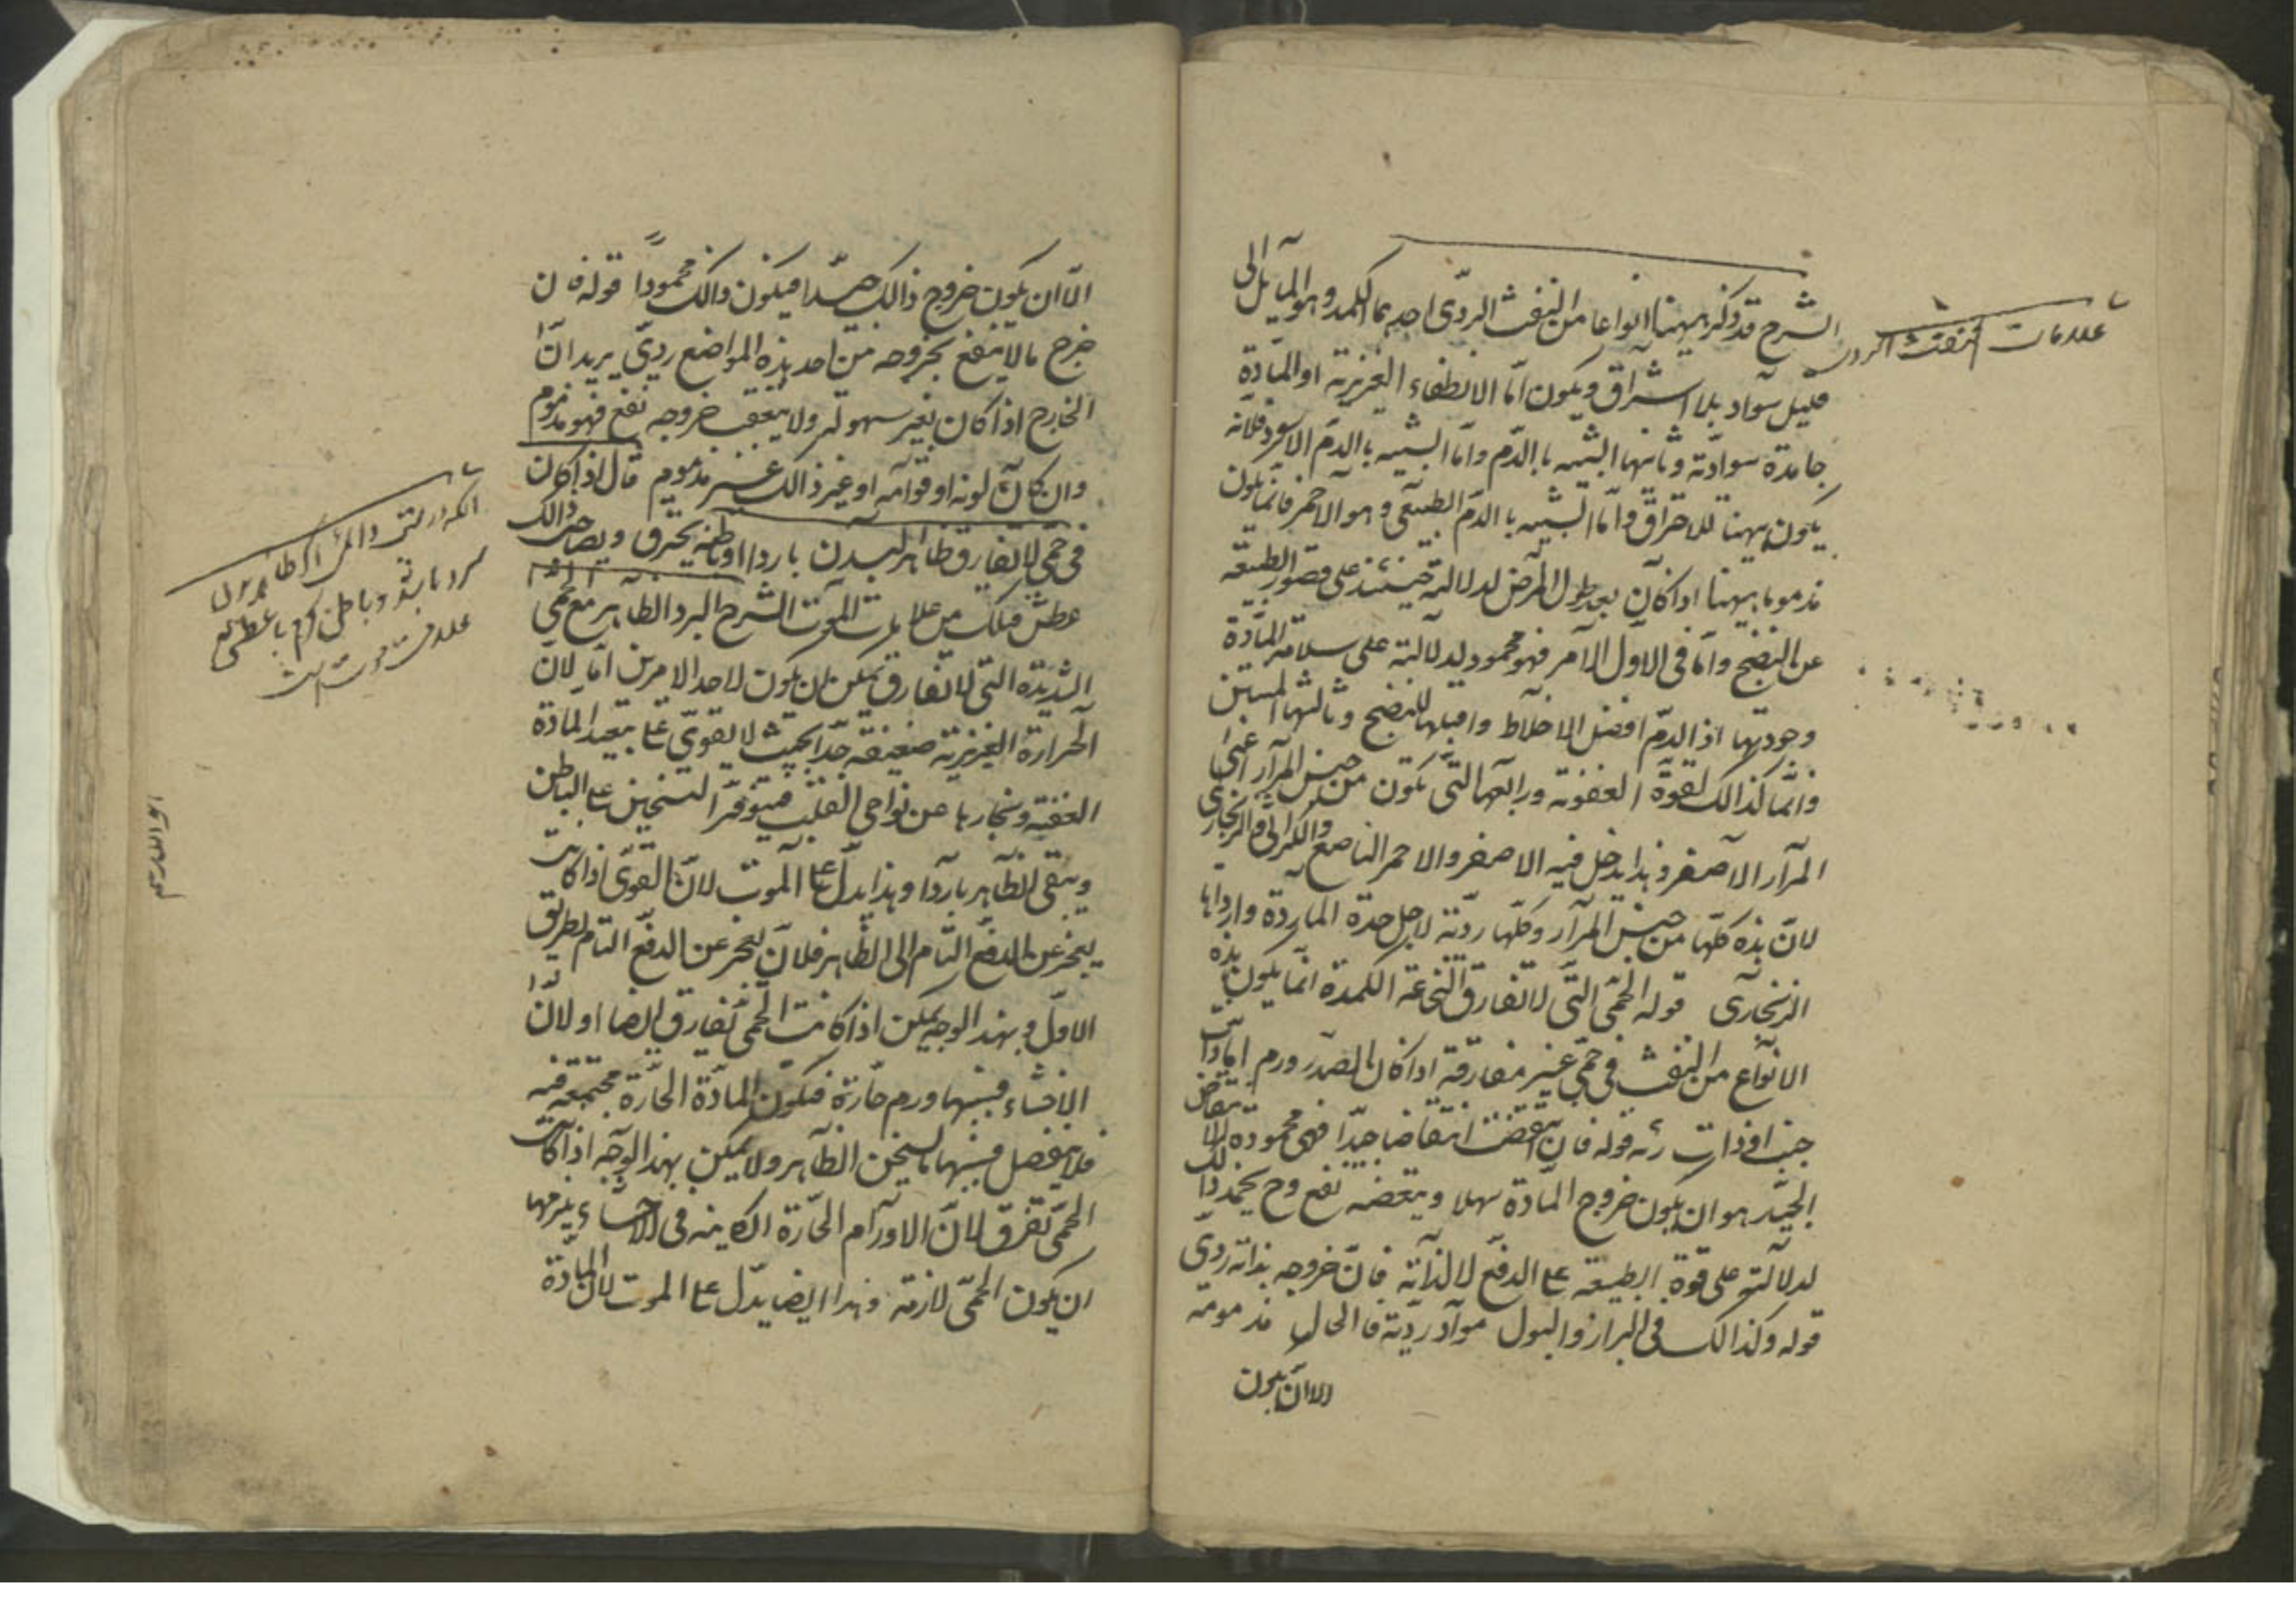 الشرح قد ذكر ههنا انواعا من النفث الردى احدها الكمد وهو المآيل الى
قليل سواد بلا اشراق ويكون امّا الانطفاء الغريزية او المادّة
جامدة سوداوية وثانيها الشبيه باالدّم وامّا الشبيه باالدم الاسود فلانه
يكون ههنا للاحتراق وامّا الشبيه باالدم الطبيعى وهو الاحمر فانّما يكون
مذموما ههنا اذا كان بعد طول المرض لدلالته حينئذ على قصور الطبيعة
عن النضج وامّا فى الاول الامر فهو محمود لدلالته على سلامة المادّة
وجودتها اذ الدمّ افضل الاخلاط واقبلها للنضج وثالثها المنتن
وانّما كذالك لقوة العفونة ورابعها التى تكون من جنس المرار اعنى
المرار الاصفر وهذا يدخل فيه الاصفر والاحمر الناصع والكراثى والزنجارى
لانّ هذه كلّها من جنس المرار وكلّها رديّة لاجل حدة المادة وارداها
الزنجارى قوله الحمّى التى لا تفارق النخاعة الكمدة انّما يكون هذه
الانواع من النفث فى حمّى غير مفارقة اذا كان بالصدر ورم امّا ذات
جنب او ذات رئه قوله فان انتقضت انتقاضا جيّدا فهى محموده الانتقاض
الجيّد هو ان يكون خروج المادّة سهلا ويتعقبه نفع وح يحمد ذالك
لدلالته على قوة الطبيعة على الدفع لا لذاته فانّ خروجه بذاته ردى
قوله وكذالك فى البراز والبول مواد رديّة فالحال مذمومة
الا ان يكون
علامات نفث الردى
الّا ان يكون خروج ذالك جيّدا فيكون ذالك محمودًا قوله فان
خرج ما لا ينتفع بخروجه من احد هذه المواضع ردىّ يريد انّ
الخارج اذا كان بغير سهولة ولا يتعقب خروجه نفع فهو مذموم
وان كان لونه او قوامه او غير ذالك غير مذموم قال اذا كان
فى حمّى لا تفارق ظاهر البدن باردا وباطنه يحترق وبصاحب ذالك
عطش فتلك من علامات الموت الشرح البرد الظاهر مع الحمى
الشديدة التى لا تفارق يمكن ان يكون لاحد الامرين امّا لان
الحرارة الغريزية ضعيفة جدّا بحيث لا يقوى على تبعيد المادة
العفنة وبخارها عن نواحى القلب فيتوفّر التسخين على الباطن
ويبقى الظاهر باردا وهذا يدلّ على الموت لانّ القوى اذا كانت
يعجز عن الدفع التام الى الظاهر فلان يعجز عن الدفع التام بطريق
الاولى وبهذا الوجه يمكن اذا كانت الحمّى تفارق ايضا او لانّ
الاحشاء فيها ورم حارة فيكون المادّة الحارّة مجتمعة فيه
فلا ينفصل منها ما يسخن الظاهر ولا يمكن بهذا الوجه اذا كانت
الحمّى تفرق لانّ الاورام الحارّة الكاينه فى الاحشاء يلزمها
ان يكون الحمّى لازمة وهذا ايضا يدّل على الموت لان المادة
انكه در تب دائمى اكر ظاهر بدن
سرد باشد و باطن كرم با عطش
علامت موت است